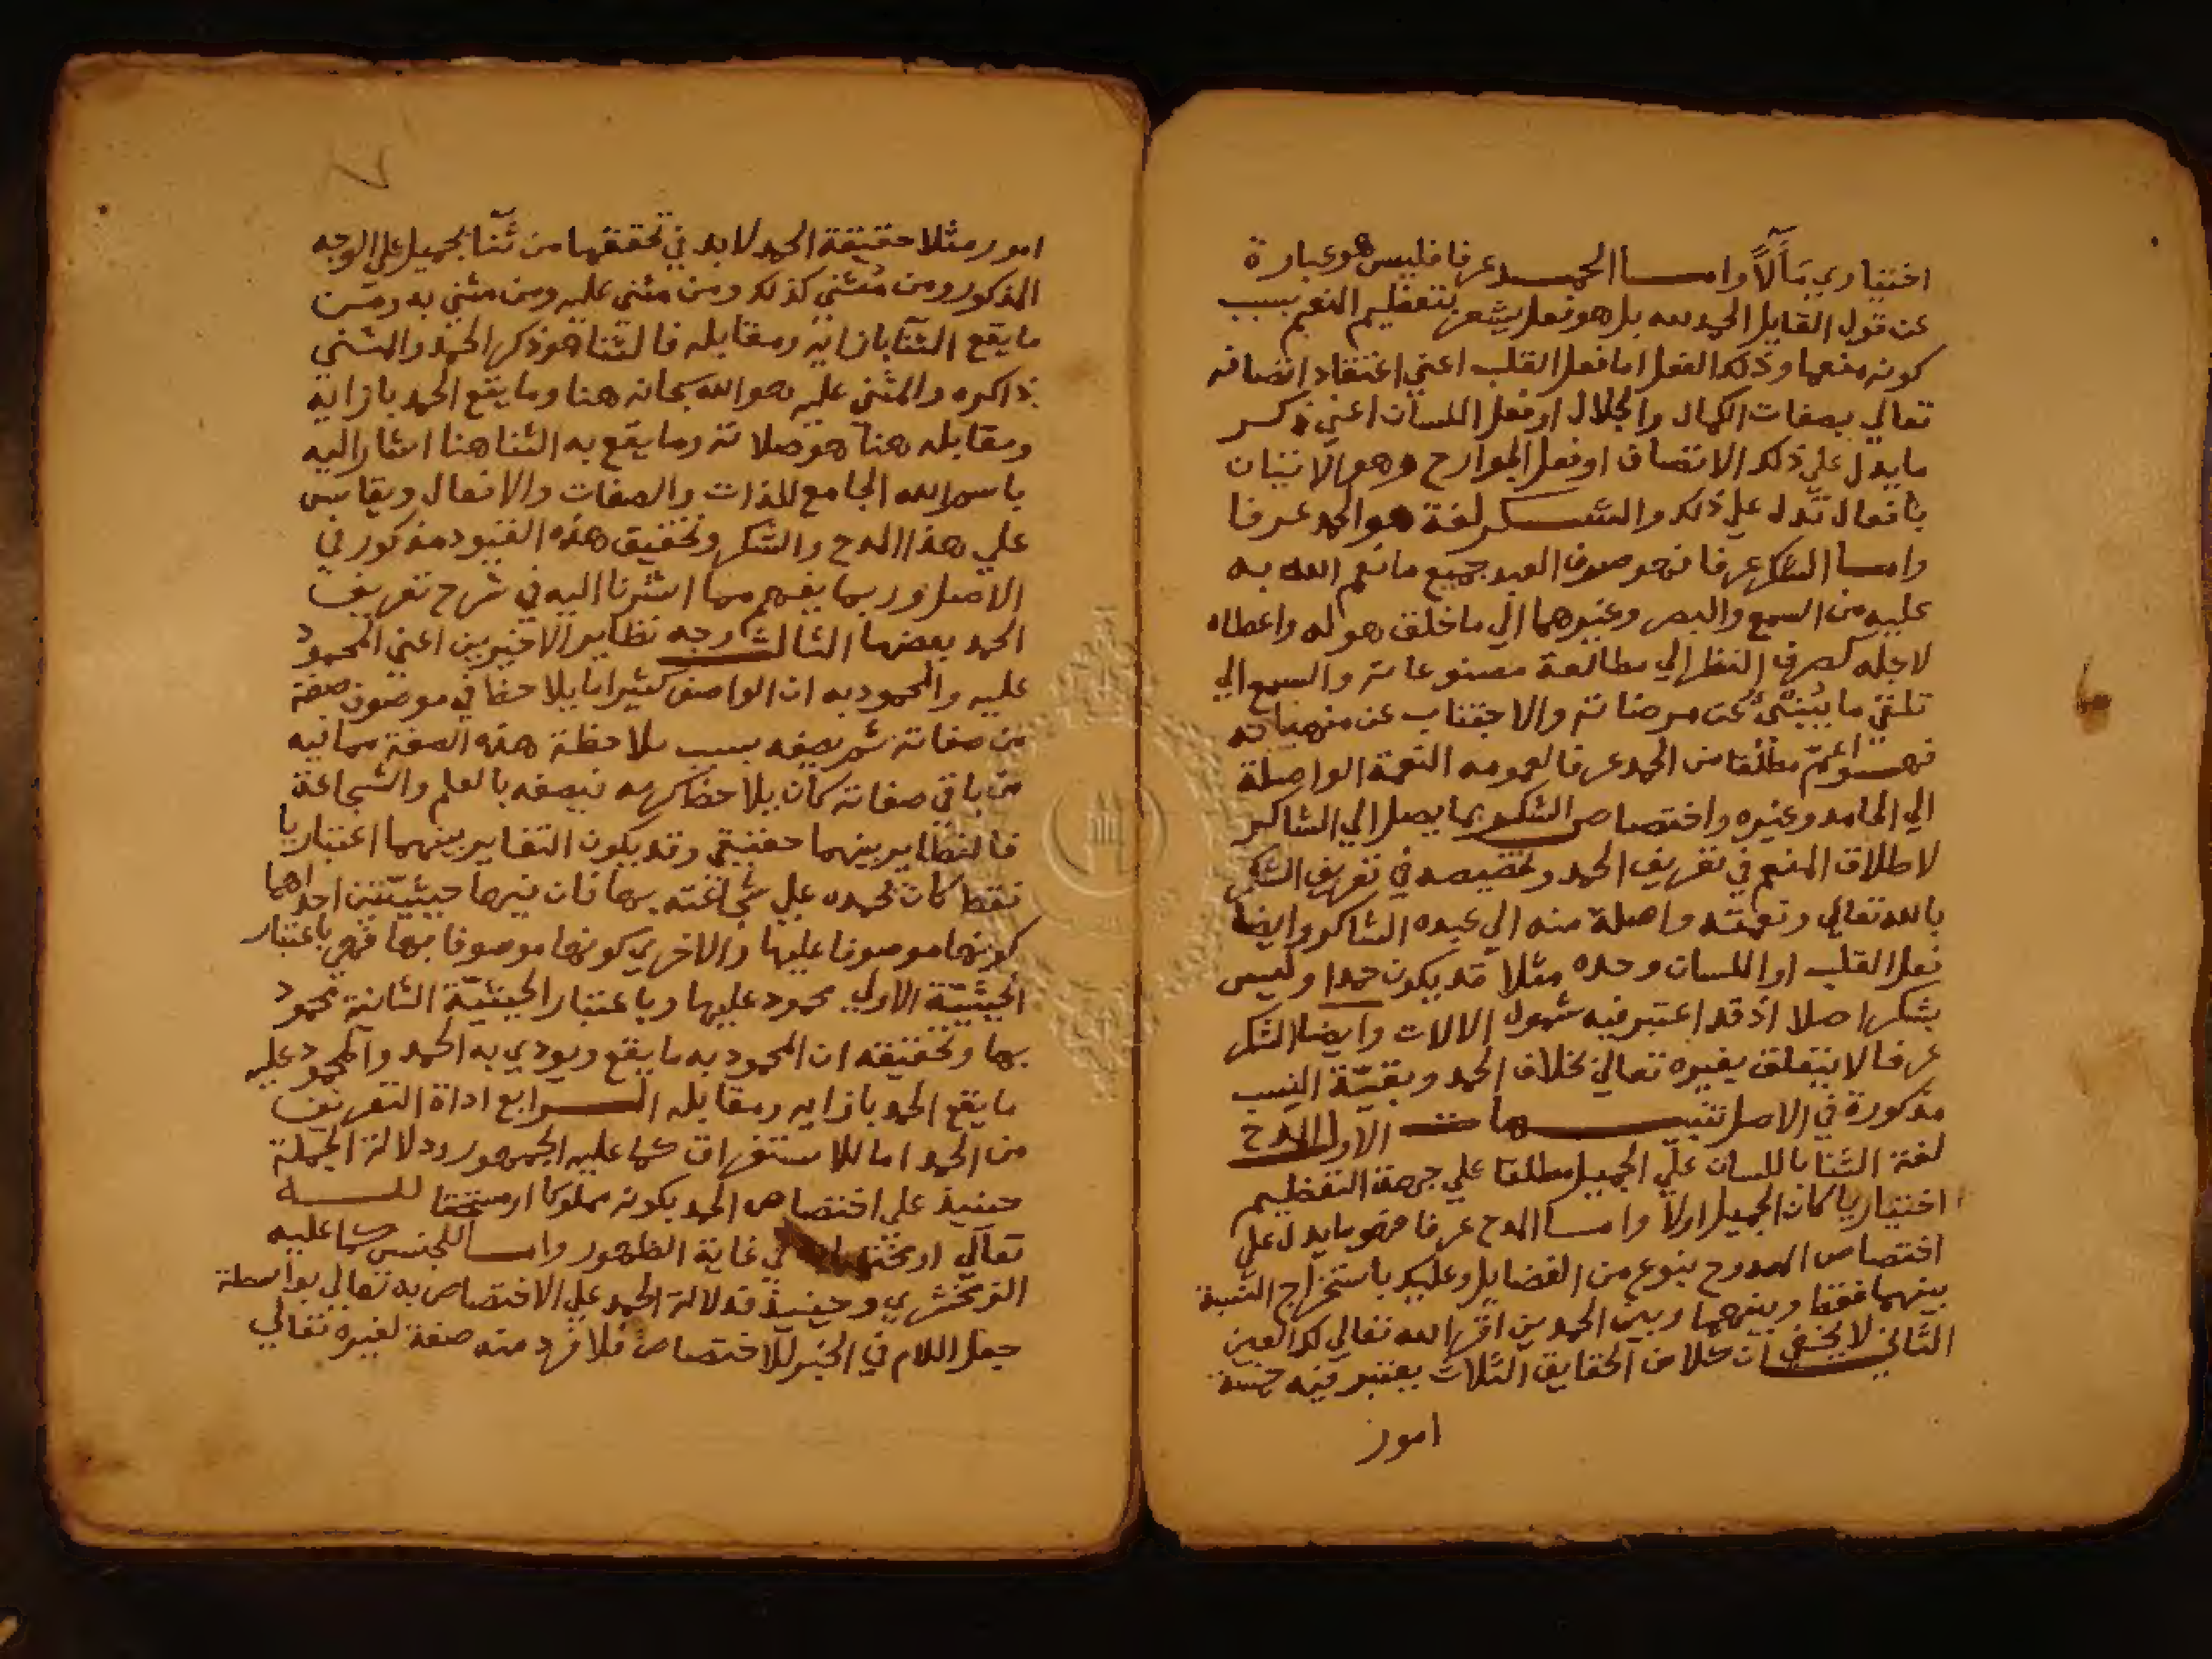 اختياري مآلا وامـا الحمـد عرفا فليس هو عبارة
عن قول القايل الحمد لله بل هو فعل يشعر بتعظيم المنعم بسبب
كونه منعما وذلك الفعل اما فعل القلب اعني اعتقاد اتصافه
تعالي بصفات الكمال والجلال او فعل اللسان اعني ذكر
ما يدل علي ذلك الاتصاف او فعل الجوارح وهو الاتيان
بافعال تدل علي ذلك والشكر لغة هو الحمد عرفا
وامـا الشكر عرفا فهو صرف العبد جميع ما انعم الله به
عليه من السمع والبصر وغيرهما الي ما خلق هو له واعطاه
لاجله كصرف النظر الي مطالعة مصنوعاته والسمع الي
تلقي ما ينبئ عن مرضاته والاجتناب عن منهياته
فهـو اعم مطلقا من الحمد عرفا لعمومه النعمة الواصلة
الي الحامد وغيره واختصاص الشكر بما يصل الي الشاكر
لاطلاق المنعم في تعريف الحمد وتخصيصه في تعريف الشكر
بالله تعالي ونعمته واصلة منه الي عبده الشاكر وايضا
فعل القلب او اللسان وحده مثلا قد يكون حمدا وليس
بشكر اصلا اذ قد اعتبر فيه شمول الالات وايضا الشكر
عرفا لا يتعلق بغيره تعالي بخلاف الحمد وبقية النسب
مذكورة في الاصل تنبيـهات الاول المدح
لغة الثنا باللسان علي الجميل مطلقا علي جهة التعظيم
اختياريا كان الجميل اولا وامـا المدح عرفا فهو ما يدل علي
اختصاص الممدوح بنوع من الفضايل وعليك باستخراج النسبة
بينهما فقط وبينهما وبين الحمدين اقر الله تعالي لك العين
الثاني لا يخفي ان كلا من الحقايق الثلاث يعتبر فيه خمسة
امور
امور مثلا حقيقة الحمد لا بد في تحققها من ثنا بجميل علي الوجه
المذكور ومن مثني كذلك ومن مثني عليه ومن مثني به ومن
ما يقع الثنا بازايه ومقابله فالثنا هو ذكر الحمد والمثني
ذاكره والمثني عليه هو الله سبحانه هنا وما يقع الحمد بازايه
ومقابله هنا هو صلاته وما يقع به الثنا هنا اشار اليه
باسم الله الجامع للذات والصفات والافعال ويقاس
علي هذا المدح والشكر وتحقيق هذه القيود مذكور في
الاصل وربما يفهم مما اشرنا اليه في شرح تعريف
الحمد بعضها الثالث وجه تغاير الاخيرين اعني المحمود
عليه والمحمود به ان الواصف كثيرا ما يلاحظ في موصوف صفة
من صفاته ثم يصفه بسبب ملاحظة هذه الصفة بما فيه
من باقي صفاته كان يلاحظ كرمه فيصفه بالعلم والشجاعة
فالتغاير بينهما حقيقي وقد يكون التغاير بينهما اعتباريا
فقط كان تحمده علي شجاعته بها فان فيها حيثيتين احداهما
كونها موصوفا عليها والاخري كونها موصوفا بها فهي باعتبار
الحيثية الاولي محمود عليها وباعتبار الحيثية الثانية محمود
بها وتحقيقه ان المحمود به ما يقع ويودي به الحمد والمحمود عليه
ما يقع الحمد بازايه ومقابله الـرابع اداة التعريف
من الحمد اما للاستغراق كما عليه الجمهور ودلالة الجملة
حينيذ علي اختصاص الحمد بكونه مملوكا او مستحقا للـه
تعالي او مختصا به في غاية الظهور وامـا للجنس كما عليه
الزمخشري وحينيذ فدلالة الحمد علي الاختصاص به تعالي بواسطة
جعل اللام في الخبر للاختصاص فلا فرد منه صفة لغيره تعالي